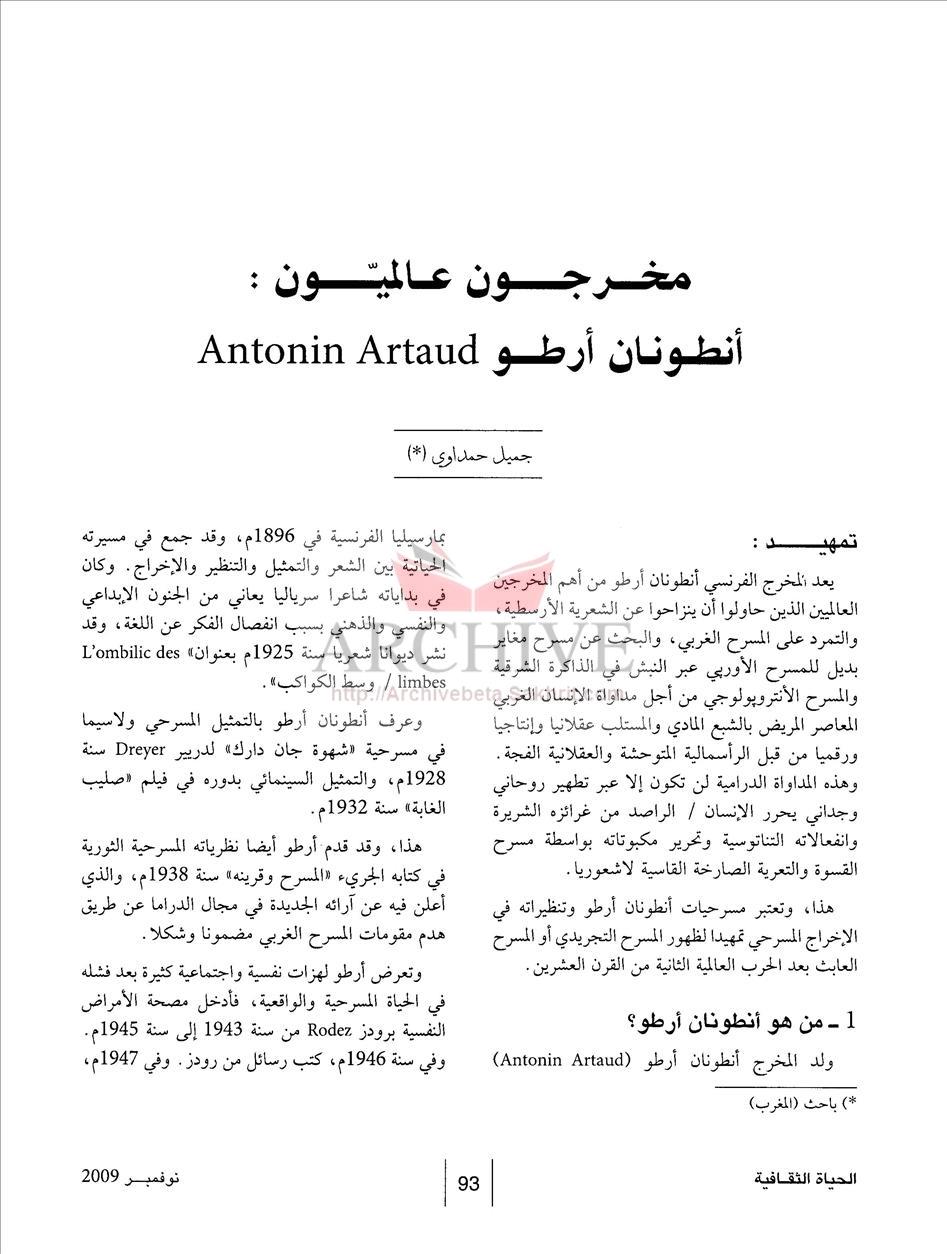 مخرجون عالميّون :
أنطونان أرطو Antonin Artaud
جميل حمداوي (*)
تمهيد :
يعد المخرج الفرنسي أنطونان أرطو من أهم المخرجين
العالميين الذين حاولوا أن ينزاحوا عن الشعرية الأرسطية،
والتمرد على المسرح الغربي، والبحث عن مسرح مغاير
بديل للمسرح الأوربي عبر النبش في الذاكرة الشرقية
والمسرح الأنتروپولوجي من أجل مداواة الإنسان الغربي
المعاصر المريض بالشبع المادي والمستلب عقلانيا وإنتاجيا
ورقميا من قبل الرأسمالية المتوحشة والعقلانية الفجة.
وهذه المداواة الدرامية لن تكون إلا عبر تطهير روحاني
وجداني يحرر الإنسان / الراصد من غرائزه الشريرة
وانفعالاته التناتوسية وتحرير مكبوتاته بواسطة مسرح
القسوة والتعرية الصارخة القاسية لاشعوريا.
هذا، وتعتبر مسرحيات أنطونان أرطو وتنظيراته في
الإخراج المسرحي تمهيدا لظهور المسرح التجريدي أو المسرح
العابث بعد الحرب العالمية الثانية من القرن العشرين.
1 ـ من هو أنطونان أرطو؟
ولد المخرج أنطونان أرطو (Antonin Artaud)
*) باحث (المغرب)
بمارسيليا الفرنسية في 1896م، وقد جمع في مسيرته
الحياتية بين الشعر والتمثيل والتنظير والإخراج. وكان
في بداياته شاعرا سرياليا يعاني من الجنون الإبداعي
والنفسي والذهني بسبب انفصال الفكر عن اللغة، وقد
نشر ديوانا شعريا سنة 1925م بعنوان» L'ombilic des
limbes / وسط الكواكب».
وعرف أنطونان أرطو بالتمثيل المسرحي ولاسيما
في مسرحية «شهوة جان دارك» لدريير Dreyer سنة
1928م، والتمثيل السينمائي بدوره في فيلم «صليب
الغابة» سنة 1932م.
هذا، وقد قدم أرطو أيضا نظرياته المسرحية الثورية
في كتابه الجريء «المسرح وقرينه» سنة 1938م، والذي
أعلن فيه عن آرائه الجديدة في مجال الدراما عن طريق
هدم مقومات المسرح الغربي مضمونا وشكلا.
وتعرض أرطو لهزات نفسية واجتماعية كثيرة بعد فشله
في الحياة المسرحية والواقعية، فأدخل مصحة الأمراض
النفسية برودز Rodez من سنة 1943 إلى سنة 1945م.
وفي سنة 1946م، كتب رسائل من رودز. وفي 1947م،
ARCHIVE
http://Archivebeta.Sakhrit.com
الحياة الثقافية
93
نوفمبر 2009